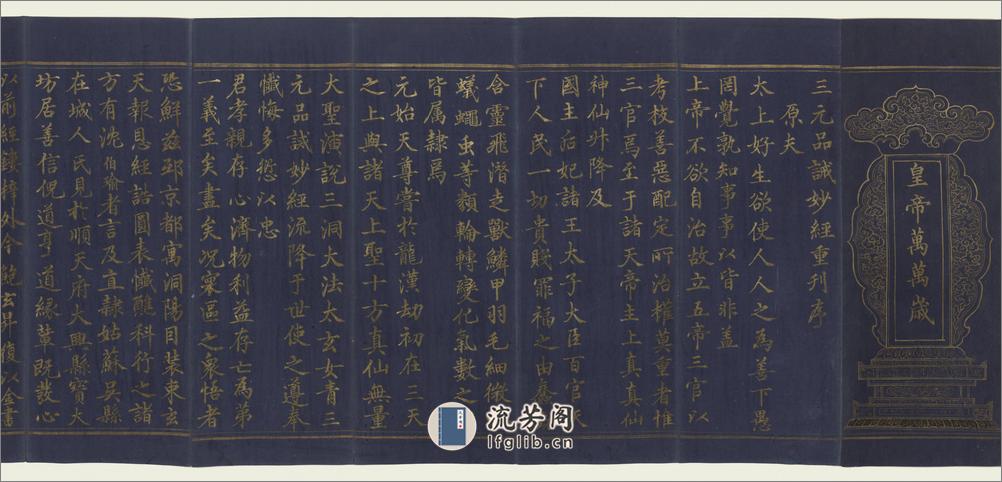 皇帝萬萬歲
三元品誡妙經重刊序
原夫
太上好生欲使人人之為善下愚
罔覺孰知事事以皆非蓋
上帝不欲自治故立五帝三官以
考校善惡配定所治權莫重者惟
三官焉至于諸天帝主上真真仙
神仙升降及
國主后妃諸王太子大臣百官
下人民一切貴賤罪福之由
含靈飛潛走獸鱗甲羽毛細微
蟻蠅虫等類輪轉變化氣數之
皆属隷焉
元始天尊嘗於龍漢劫初在三天
之上與諸天上聖十方真仙無量
大聖演說三洞大法太玄女青三
元品誡妙經流降于世使之遵奉
懺悔多愆以忠
君孝親存心濟物利益存亡為弟
一義至矣盡矣况寰區之衆悟者
恐鮮茲邳京都寓洞陽目裝東玄
天報恩經誥圓表懺醮科行之諸
方有沈伯瑜者言及直隷姑蘇吳縣
在城人民見於順天府大興縣寶大
坊居善信倪道亨道緣黄既發心
以前經鏤梓外令鮑玄昇復以金書
流芳阁
lfglib.cn